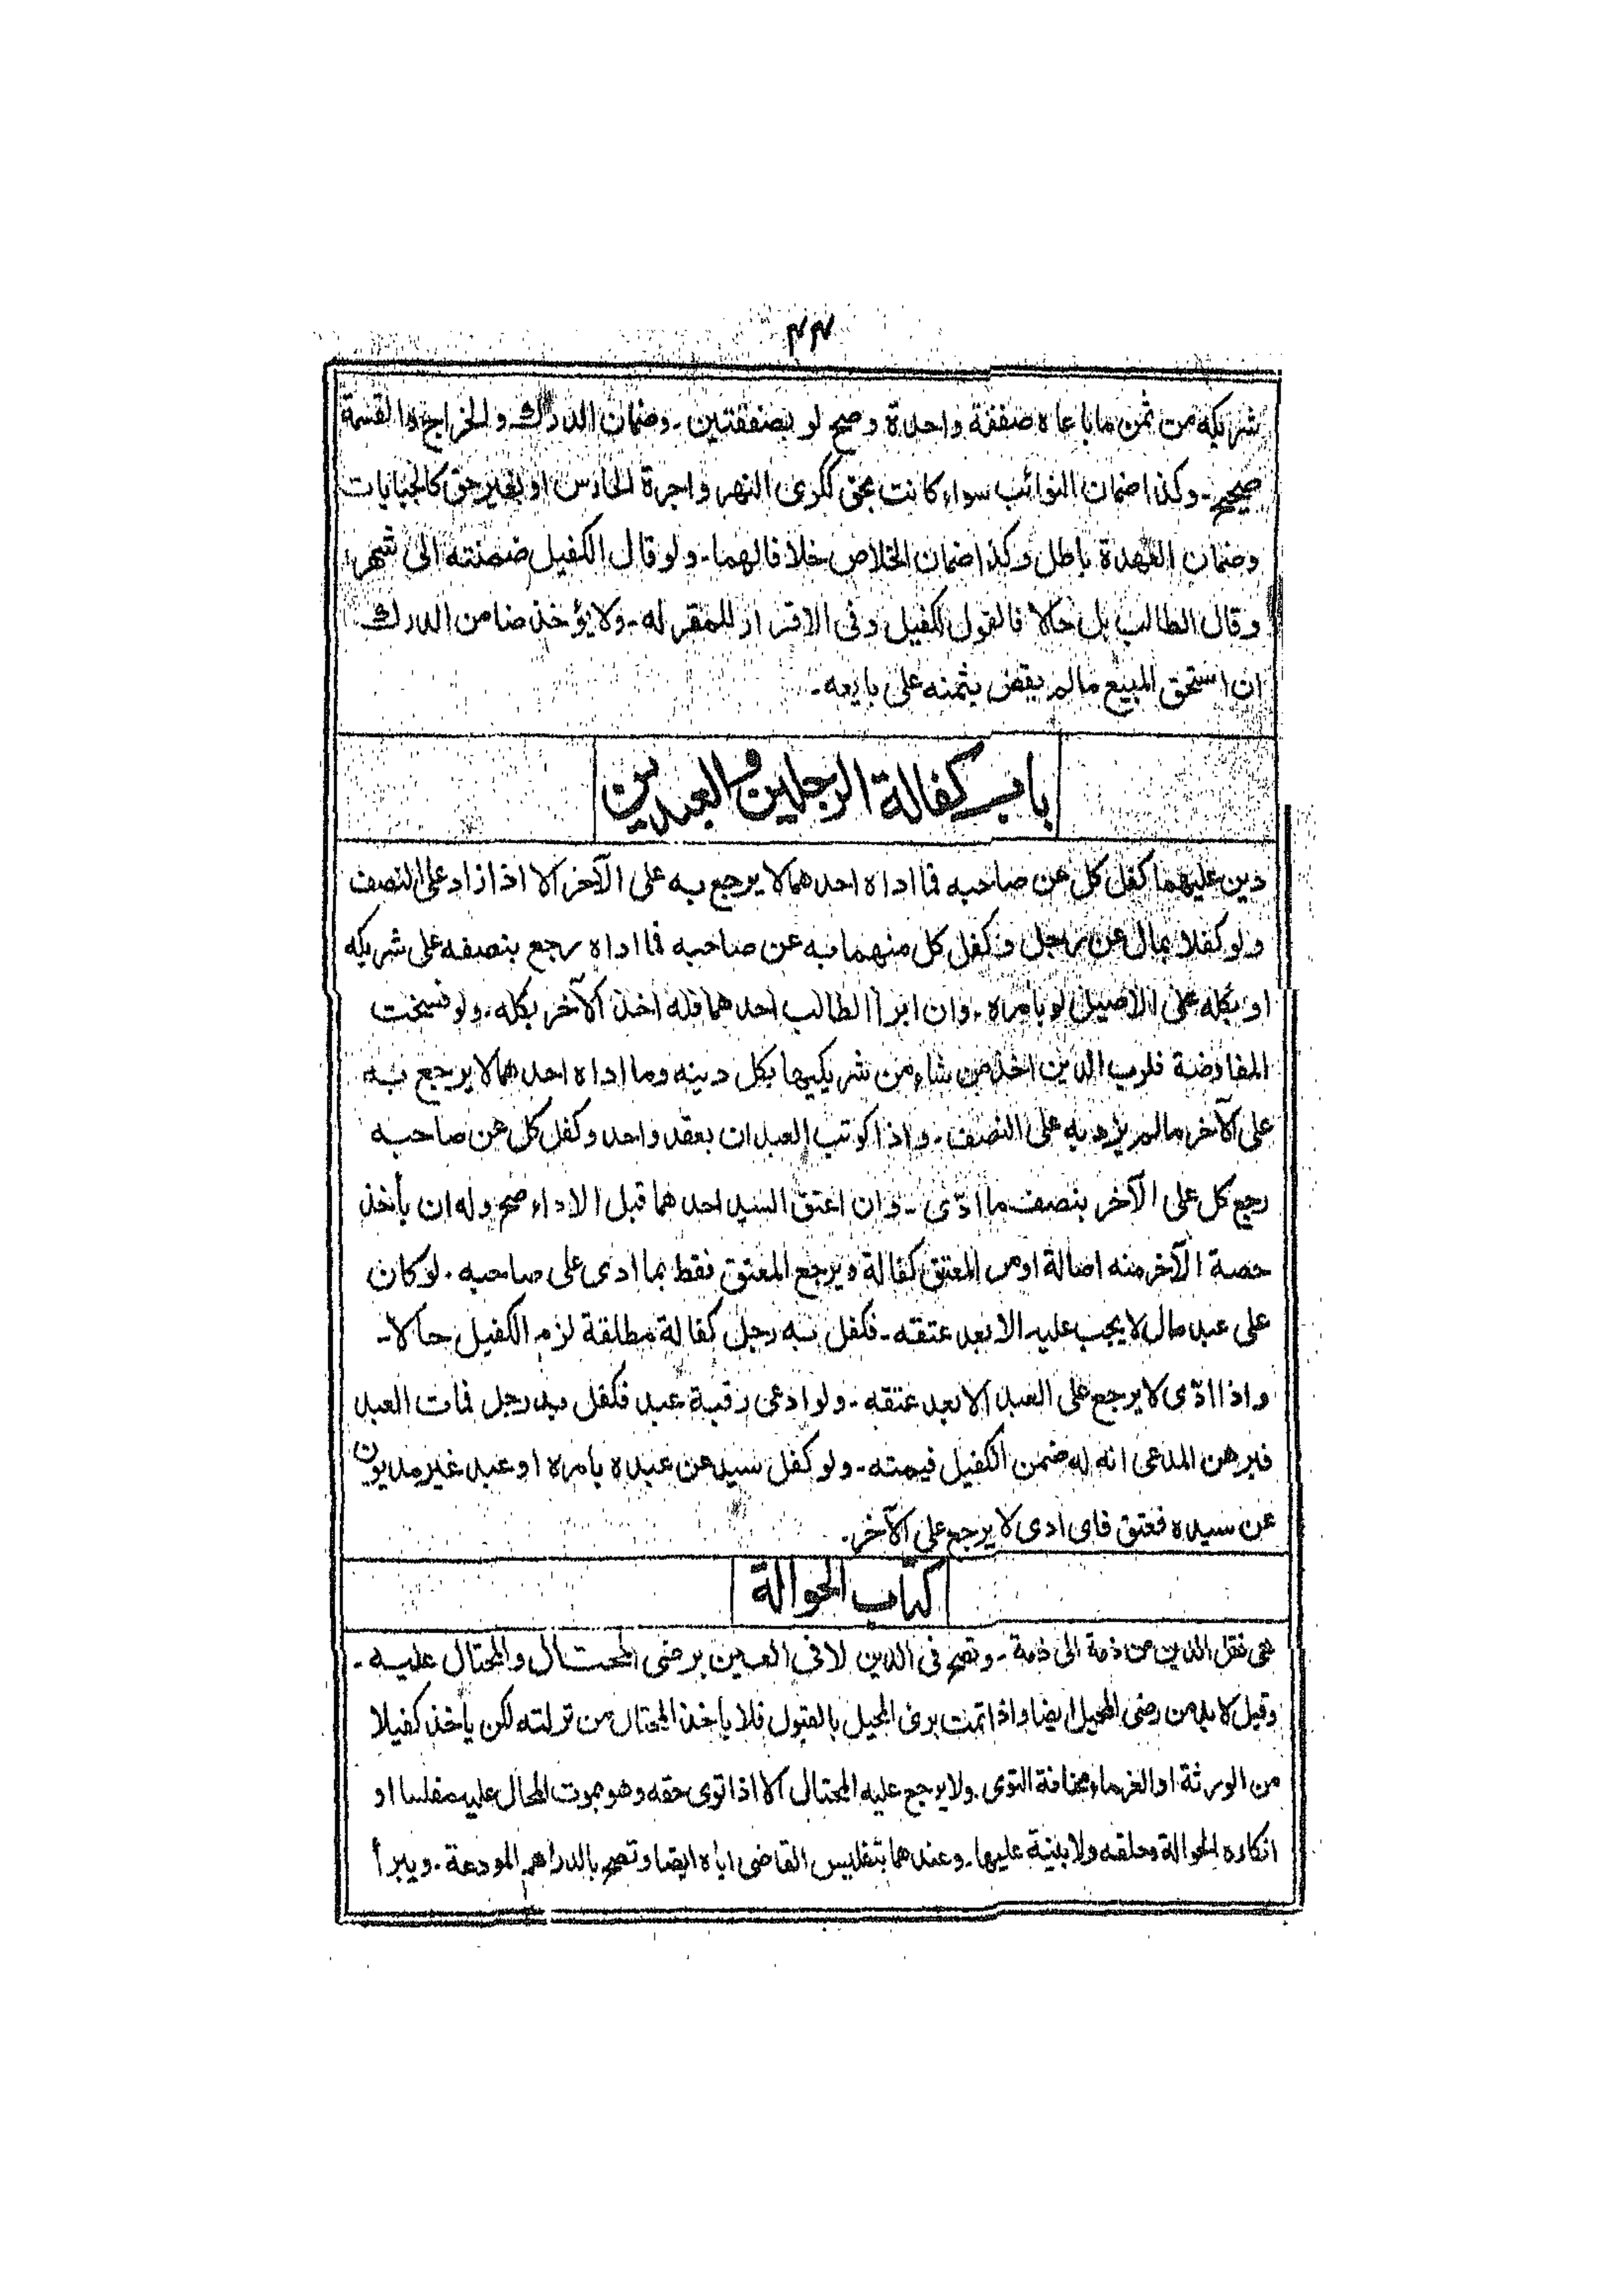 ٤٤
شريكه من ثمن ما باعاه صفقة واحدة وصح لو بصفقتين ۔ وضمان الدرك والخراج والقسمة
صحيح ۔ وكذا ضمان النوائب سواء كانت بحق ككرى النهر واجرة الحارس او بغير حق كالجبايات
وضمان العهدة باطل وكذا ضمان الخلاص خلافا لهما ۔ ولو قال الكفيل ضمنته الى شهر
وقال الطالب بل حالا فالقول للكفيل وفى الاقرار للمقر له ۔ ولا يؤخذ ضامن الدرك
ان استحق المبيع مالم يقض بثمنه على بايعه ۔
باب كفالة الرجلين والعبدين
دين عليهما كفل كل عن صاحبه فما اداه احدهما لا يرجع به على الآخر الا اذا زاد على النصف
ولو كفلا بمال عن رجل وكفل كل منهما به عن صاحبه فما اداه رجع بنصفه على شريكه
او بكله على الاصيل لو بامره ۔ وان ابرأ الطالب احدهما فله اخذ الآخر بكله ۔ ولو فسخت
المفاوضة فلرب الدين اخذ من شاء من شريكيها بكل دينه وما اداه احدهما لا يرجع به
على الآخر مالم يزد به على النصف ۔ واذا كوتب العبدان بعقد واحد وكفل كل عن صاحبه
رجع كل على الآخر بنصف ما ادّى ۔ وان اعتق السيد احدهما قبل الاداء صح وله ان يأخذ
حصة الآخر منه اصالة او من المعتق كفالة ويرجع المعتق فقط بما ادى على صاحبه ۔ لو كان
على عبد مال لا يجب عليه الا بعد عتقه ۔ فكفل به رجل كفالة مطلقة لزم الكفيل حالا ۔
واذا ادّى لا يرجع على العبد الا بعد عتقه ۔ ولو ادعى رقبة عبد فكفل به رجل فمات العبد
فبرهن المدعى انه له ضمن الكفيل قيمته ۔ ولو كفل سيد عن عبده بامره او عبد غير مديون
عن سيده فعتق فاى ادى لا يرجع على الآخر ۔
كتاب الحوالة
هى نقل الدين من ذمة الى ذمة ۔ وتصح فى الدين لا فى العين برضى المحتال والمحتال عليه ۔
وقيل لا بد من رضى المحيل ايضا واذا تمت برئ المحيل بالقبول فلا يأخذ المحتال من تركته لكن يأخذ كفيلا
من الورثة او الغرماء مخافة التوى ۔ ولا يرجع عليه المحتال الا اذا توى حقه وهو بموت المحال عليه مفلسا او
انكاره الحوالة وحلفه ولا بينة عليها ۔ وعندهما بتفليس القاضى اياه ايضا وتصح بالدراهم المودعة ۔ ويبرأ